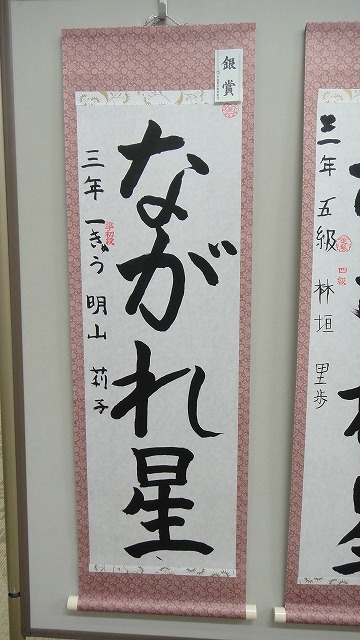 銀賞
ながれ星
三年 一きゅう 明山 莉子
準初段
三年 五級 林垣 里歩
四級